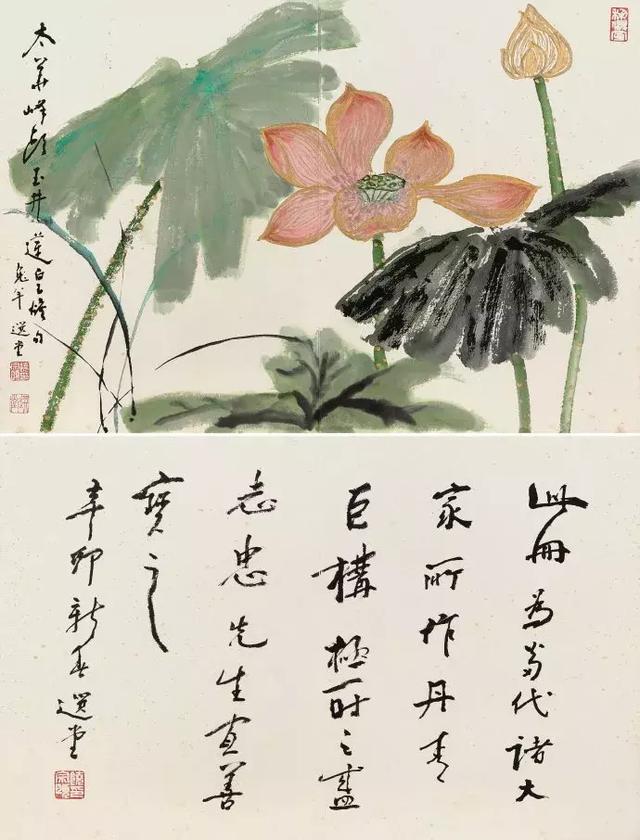 太華峰頭玉井蓮
兔年選堂
此冊為當代諸大
家所作丹青
巨構極一時之盛
志忠先生宜善
寶之
辛卯新春選堂